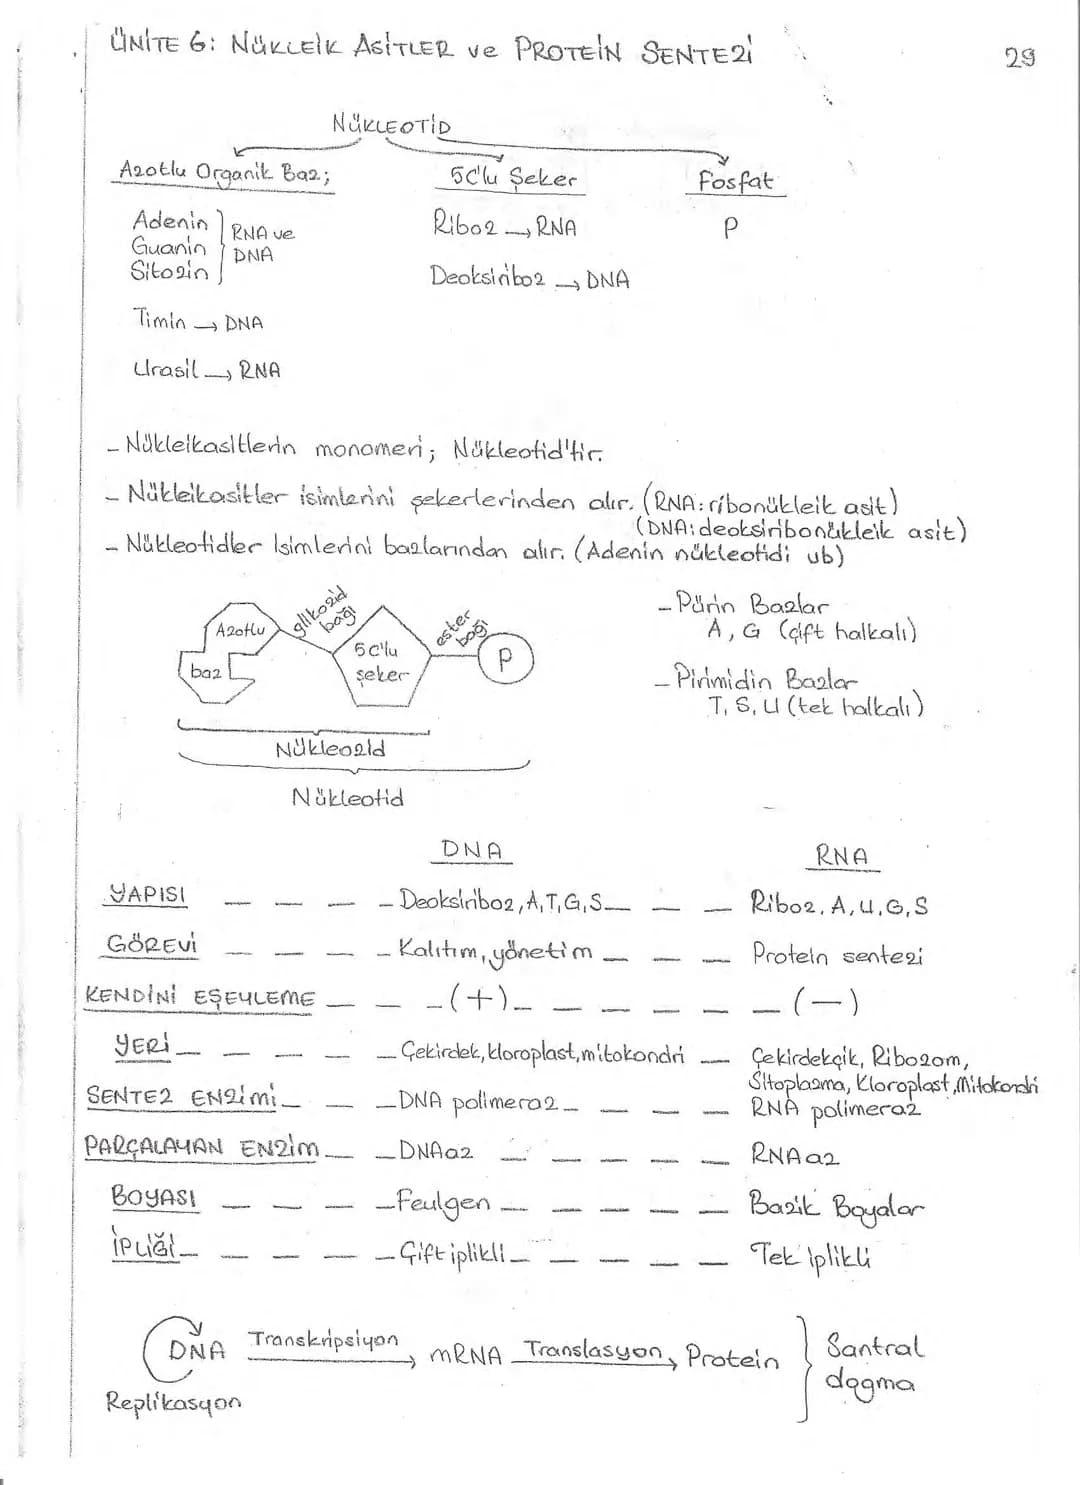 ÜNİTE 6: NÜKLEİK ASİTLER ve PROTEİN SENTEZİ
29
NÜKLEOTİD
Azotlu Organik Baz;
5C'lu Şeker
Fosfat
Adenin
Guanin
Sitozin
RNA ve
DNA
Riboz → RNA
P
Deoksiriboz → DNA
Timin → DNA
Urasil → RNA
- Nükleikasitlerin monomeri; Nükleotid'tir.
- Nükleikasitler isimlerini şekerlerinden alır. (RNA: ribonükleik asit)
(DNA: deoksiribonükleik asit)
- Nükleotidler isimlerini bazlarından alır. (Adenin nükleotidi vb)
Azotlu
baz
glikozid
bağı
5C'lu
şeker
ester
bağı
P
Nükleozid
Nükleotid
- Pürin Bazlar
A, G (çift halkalı)
- Pirimidin Bazlar
T, S, U (tek halkalı)
DNA RNA
YAPISI - Deoksiriboz, A, T, G, S Riboz, A, U, G, S
GÖREVİ - Kalıtım, yönetim Protein sentezi
KENDİNİ EŞEYLEME - (+) (-)
YERİ - Çekirdek, kloroplast, mitokondri Çekirdekçik, Ribozom,
Sitoplazma, Kloroplast, Mitokondri
SENTEZ ENZİMİ - DNA polimeraz RNA polimeraz
PARÇALAYAN ENZİM - DNAaz RNAaz
BOYASI - Feulgen Bazik Boyalar
İPLİĞİ - Çift iplikli Tek iplikli
DNA Transkripsiyon → mRNA Translasyon → Protein
Replikasyon
Santral
dogma